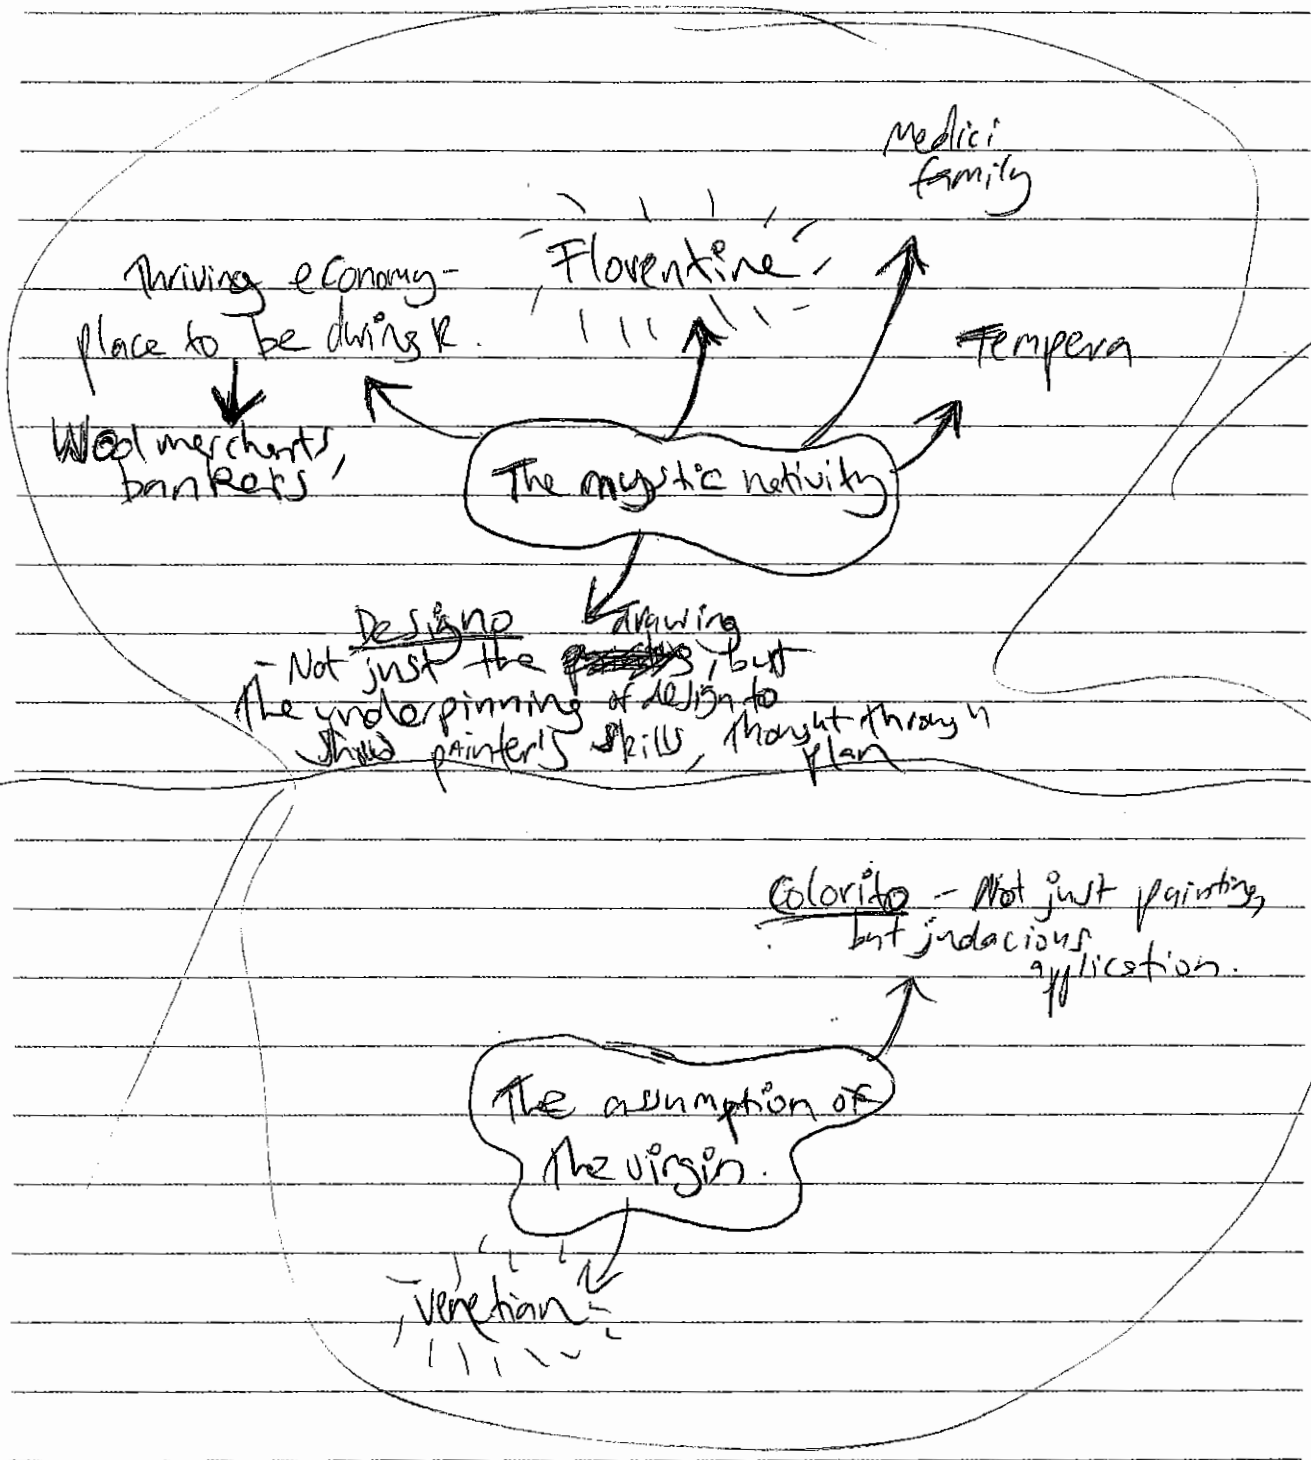 Medici
family
Florentine
Thriving economy-
place to be during R.
Tempera
Wool merchants,
bankers
The mystic nativity
Designo
drawing
- Not just the , but
the underpinning of design to
painter's skills, thought through
plan
Colorito - Not just painting,
but judacious
application.
The assumption of
the virgin.
Venetian